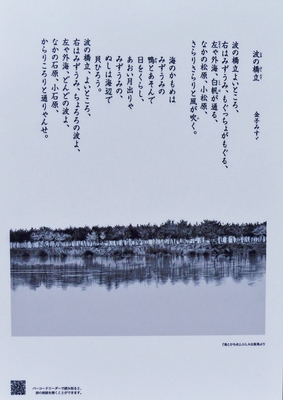 波の橋立
金子みすゞ
波の橋立よいところ、
右はみずうみ、もぐっちょがもぐる、
左ゃ外海、白帆が通る、
なかの松原、小松原、
さらりさらりと風が吹く。
海のかもめは
みずうみの
鴨とあそんで
日をくらし
あおい月出りゃ
みずうみの、
ぬしは海辺で
貝ひろう。
波の橋立、よいところ、
右はみずうみ、ちょろろの波よ、
左ゃ外海、どんどの波よ、
なかの石原、小石原、
からりころりと通りゃんせ。
バーコードリーダーで読み取ると、